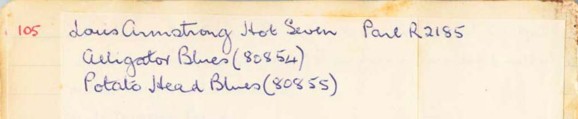 105 Louis Armstrong Hot Seven Parl R2185
Alligator Blues (80854)
Potato Head Blues (80855)